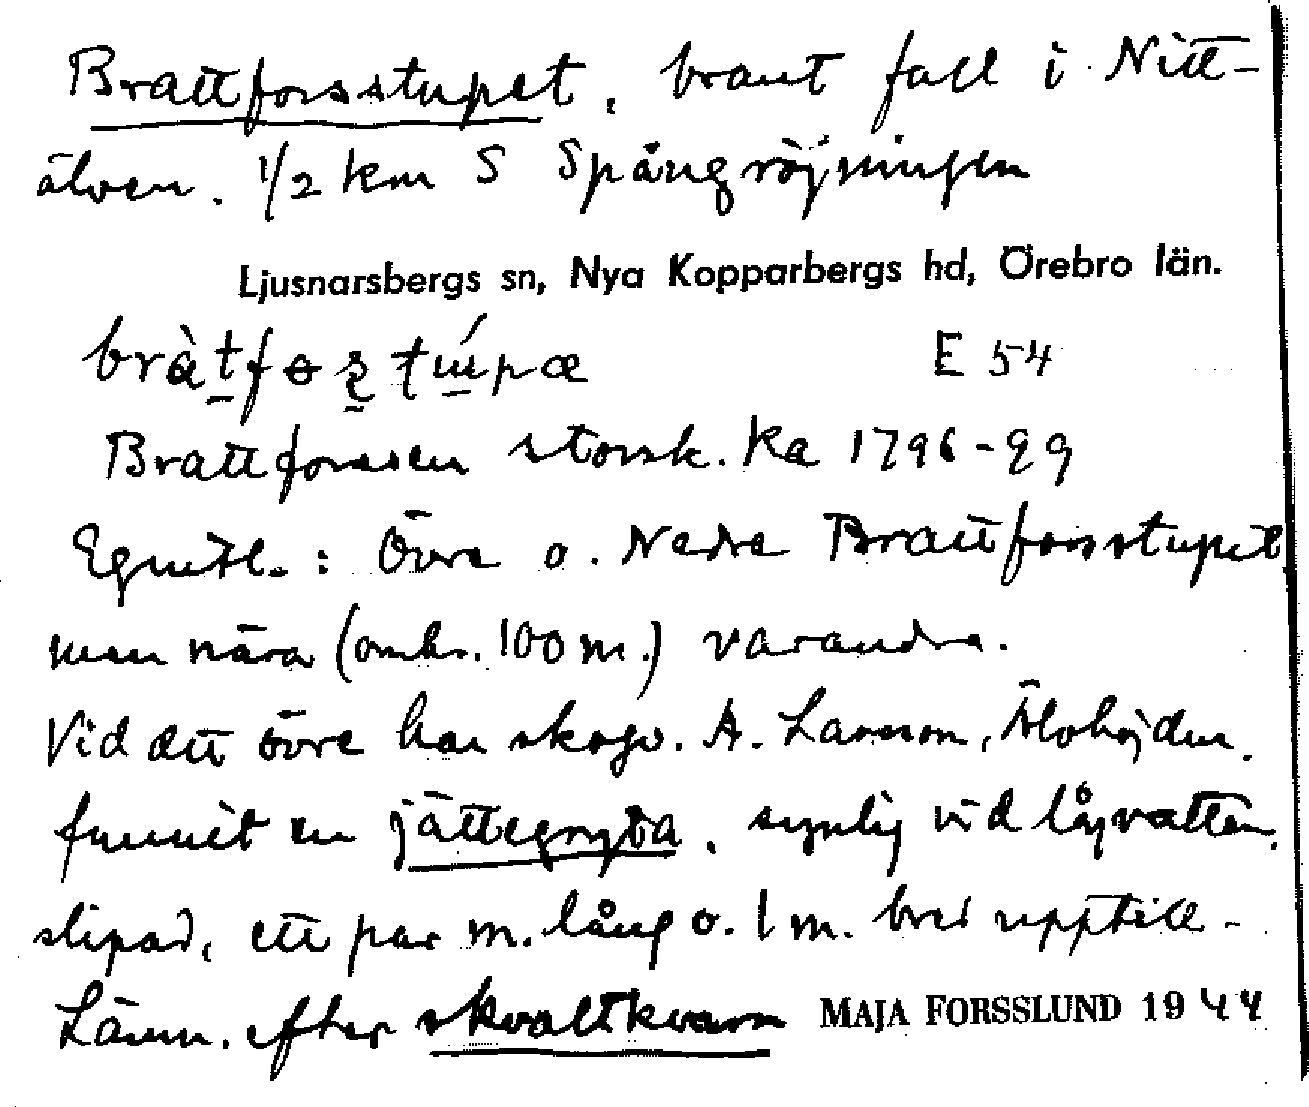 Brattforsstupet, brant fall i Nitt-
älven. 1/2 km S Spångröjningen
Ljusnarsbergs sn, Nya Kopparbergs hd, Örebro län.
E 54
Brattforssen storsk. Ka 1796-99
Egentl. : Övre o. Nedre Brattforsstupet
men nära (omkr. 100 m.) varandra.
Vid det övre har skogv. A. Larsson, Älvhöjden,
funnit en jättegryta, synlig vid lågvatten,
slipad, ett par m. lång o. 1 m. bred upptill -
Lämn. efter skvaltkvarn MAJA FORSSLUND 1944